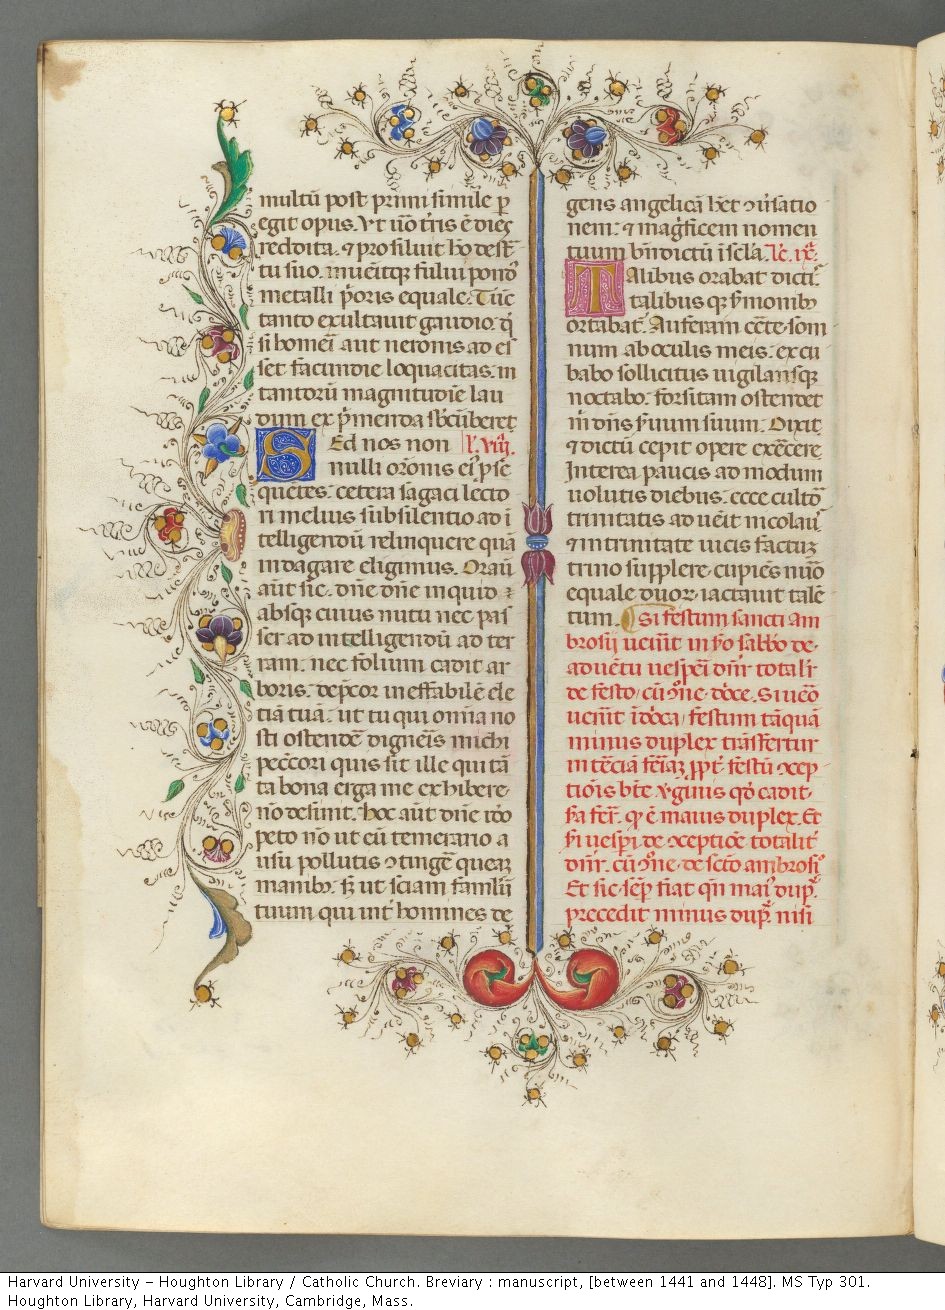 multū post primi simile p̲
egit opus. Vt ūo tr̄is ē dies
reddita. ⁊ prosiluit hō de st̄
tu suo. inuēitq̨ fului pond̾
metalli p̄oris equale. Tūc
tanto exultauit gaudio. q̄
si homēi aut neronis ad eſ
set facundie loquacitas. in
tantorū magnitudīe lau
dum ex p̄menda sb̄cūberet
Sed nos non l'. viij.
nulli orōnis eiꝰ pse
quētes. cetera sagaci lecto
ri melius sub silentio ad ī
telligendū relinquere quā
indagare eligimus. Oraū
aūt sic. dn̄e dn̄e inquid
absq̨ cuius nutu nec pas
ser ad intelligendū ad ter
ram. nec folium cadit ar
boris. dep̄cor ineffabilē cle
tiā tuā. ut tu qui omīa no
sti ostendē dignēis michi
pec̄cori quis sit ille qui tā
ta bona erga me exhibere
nō desinit. Hoc aūt dn̄e
peto nō ut eū temerario a
usu pollutis ↄtingē queaꝫ
manibꝫ. sꝫ ut sciam famlū
tuum qui int̾ homines de
gens angelicā hēt ↄūsatio
nem. ⁊ magn̄ficem nomen
tuum bn̄dictū ī scl̄a. lc̄. ix̄.
Talibus orabat dictiꝰ.
talibus q̨ s̾monibꝫ
ortabat̾. Auferam cēte som
num ab oculis meis. excu
babo sollicitus uigilansq̨
noctabo. forsitam ostendet
m̄ dn̄s s̾uum suum. Dixit.
⁊ dictū cepit opere exēcere
Interea paucis ad modum
uolutis diebus. ecce cultō
trinitatis aduēit nicolauꝰ
⁊ in trinitate uicis factuꝫ
trino supplere cupiēs nūo
equale duoꝝ iactauit talē
tum. Si festum sancti am
brosij uen̄it in p̄o sabb̄o de
aduētu uesp̄ei dn̄r totalit̾
de festo. cū ↄ̄ne. dōce. Si uēo
uen̄it ī dōca. festum tāquā
minus duplex trāsfertur
in tēciā fēiaꝫ ꝓpt̾ festū ↄcep
tiōis bt̄e ꝟginis qd̾ cadit
s̄a fer̄. q̨ ē maius duplex. Et
s̄i uesp̄i de ↄceptiōe totalit̾
dn̄r. cū ↄ̄ne. de scto ambrosiꝰ
Et sic semp̲ fiat qn̄ maiꝰ dup̄.
precedit minus dup̄. nisi
Harvard University – Houghton Library / Catholic Church. Breviary : manuscript, [between 1441 and 1448]. MS Typ 301.
Houghton Library, Harvard University, Cambridge, Mass.